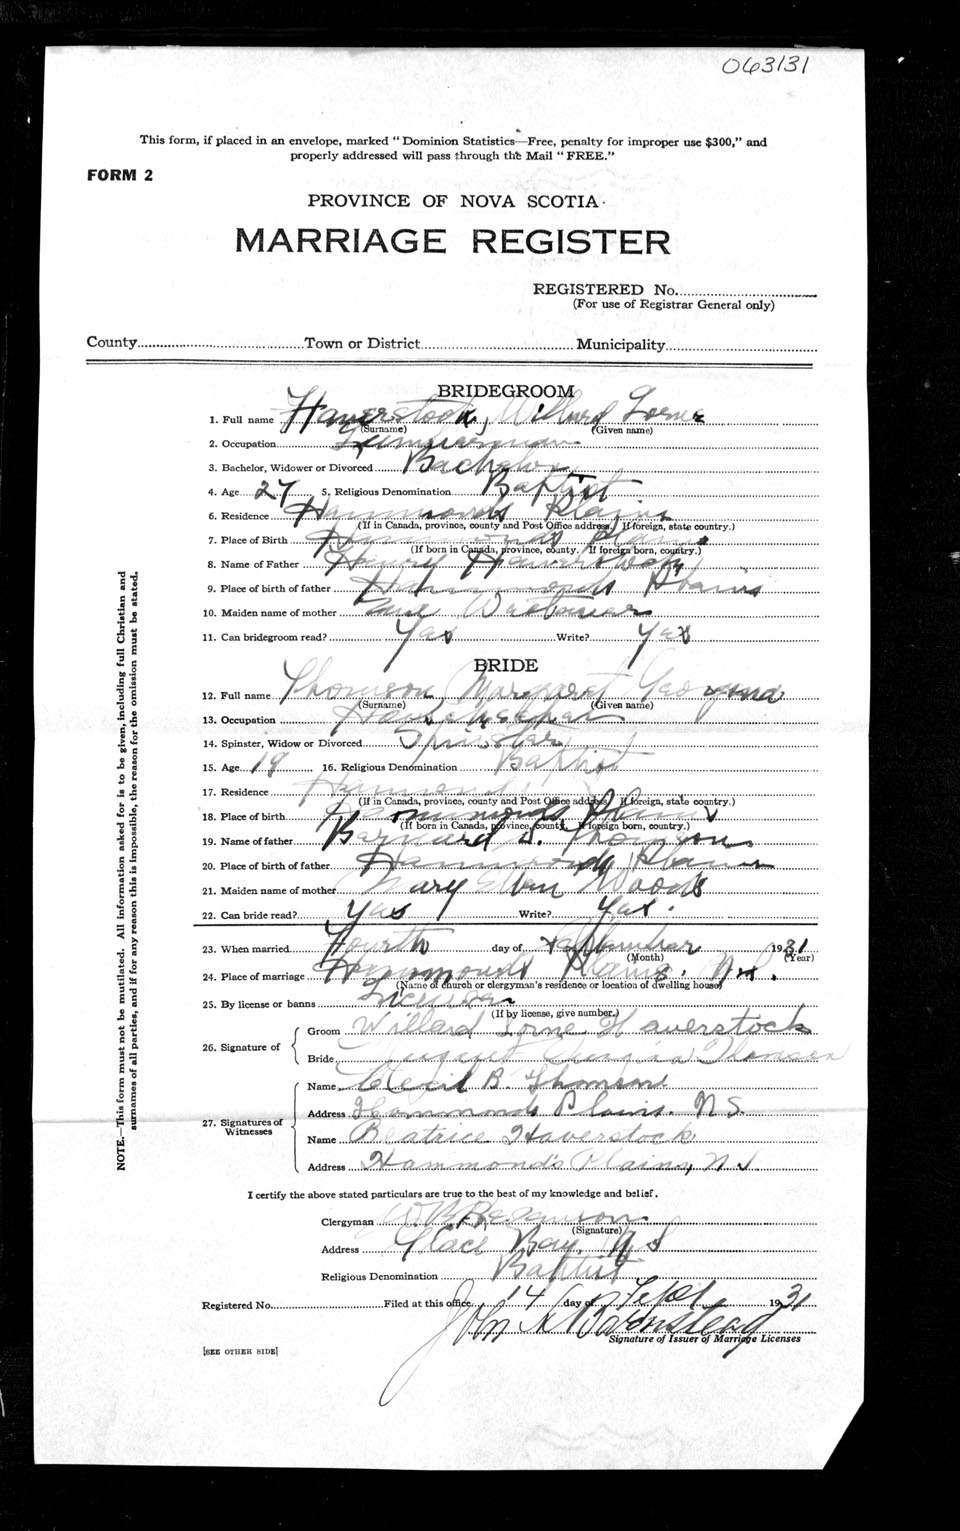 063131
This form, if placed in an envelope, marked "Dominion Statistics—Free, penalty for improper use $300," and
properly addressed will pass through the Mail "FREE."
FORM 2
PROVINCE OF NOVA SCOTIA
MARRIAGE REGISTER
REGISTERED No.
(For use of Registrar General only)
County Town or District Municipality
BRIDEGROOM
1. Full name Haverstock, Willard Lorne
(Surname) (Given name)
2. Occupation Lumberman
3. Bachelor, Widower or Divorced Bachelor
4. Age 27 5. Religious Denomination Baptist
6. Residence Hammonds Plains
(If in Canada, province, county and Post Office address. If foreign, state country.)
7. Place of Birth Hammonds Plains
(If born in Canada, province, county. If foreign born, country.)
8. Name of Father Henry Haverstock
9. Place of birth of father Hammonds Plains
10. Maiden name of mother
11. Can bridegroom read? Yas Write? Yas
BRIDE
12. Full name Thomson Margaret Georgina
(Surname) (Given name)
13. Occupation House Keeper
14. Spinster, Widow or Divorced Spinster
15. Age 19 16. Religious Denomination Baptist
17. Residence Hammonds
(If in Canada, province, county and Post Office address. If foreign, state country.)
18. Place of birth Hammonds Plains
(If born in Canada, province, county. If foreign born, country.)
19. Name of father Barnard D. Thomson
20. Place of birth of father Hammonds Plains
21. Maiden name of mother Mary Ellen Woods
22. Can bride read? Yas Write? Yas.
23. When married Fourth day of September 1931
(Month) (Year)
24. Place of marriage Hammonds Plains. N.S.
(Name of church or clergyman's residence or location of dwelling house)
25. By license or banns License
(If by license, give number.)
26. Signature of
Groom Willard Lorne Haverstock
Bride Thomson
27. Signatures of Witnesses
Name Cecil B. Thomson
Address Hammonds Plains. N S.
Name Beatrice Haverstock
Address Hammond's Plains, N.S.
I certify the above stated particulars are true to the best of my knowledge and belief.
Clergyman
(Signature)
Address Glace Bay, N S
Religious Denomination Baptist
Registered No. Filed at this office 14 day of Sept 1931
John
Signature of Issuer of Marriage Licenses
[SEE OTHER SIDE]
NOTE.—This form must not be mutilated. All information asked for is to be given, including full Christian and
surnames of all parties, and if for any reason this is impossible, the reason for the omission must be stated.